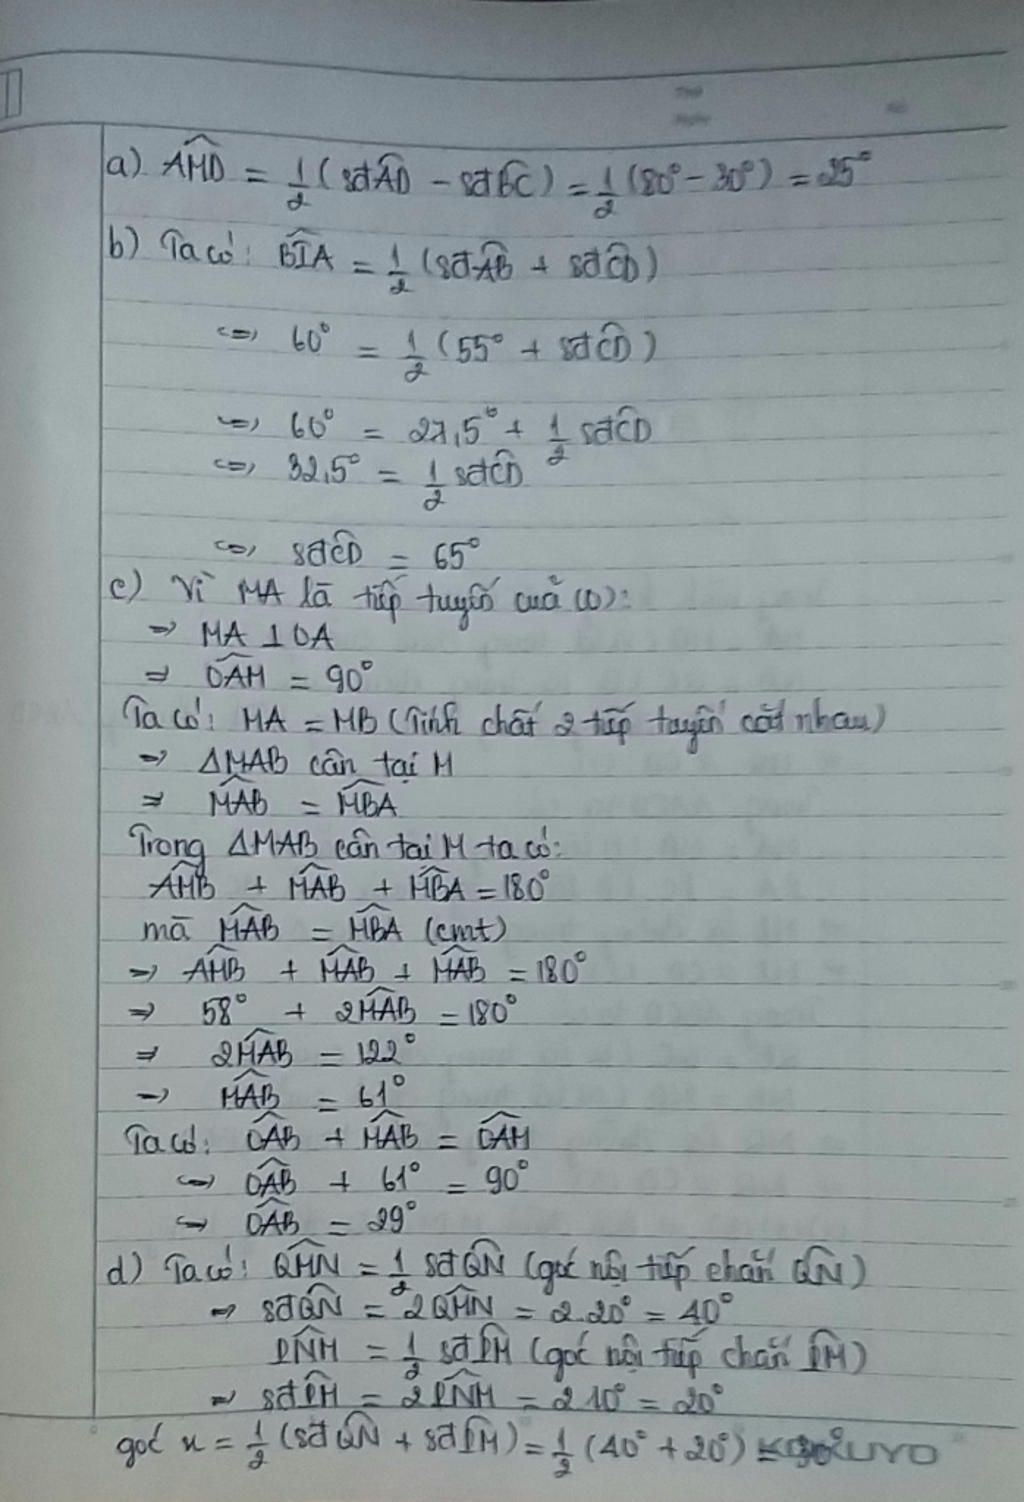 a) AMD = 1/2 (sđAD - sđBC) = 1/2 (80° - 30°) = 25°
b) Ta có: BIA = 1/2 (sđAB + sđCD)
<=> 60° = 1/2 (55° + sđCD)
<=> 60° = 27,5° + 1/2 sđCD
<=> 32,5° = 1/2 sđCD
<=> sđCD = 65°
c) Vì MA là tiếp tuyến của (O):
=> MA ⊥ OA
=> OAM = 90°
Ta có: MA = MB (Tính chất 2 tiếp tuyến cắt nhau)
=> ΔMAB cân tại M
=> MAB = MBA
Trong ΔMAB cân tại M ta có:
AMB + MAB + MBA = 180°
mà MAB = MBA (cmt)
=> AMB + MAB + MAB = 180°
=> 58° + 2MAB = 180°
=> 2MAB = 122°
=> MAB = 61°
Ta có: OAB + MAB = OAM
<=> OAB + 61° = 90°
<=> OAB = 29°
d) Ta có: QMN = 1/2 sđQN (góc nội tiếp chắn QN)
=> sđQN = 2QMN = 2.20° = 40°
PNM = 1/2 sđPM (góc nội tiếp chắn PM)
=> sđPM = 2PNM = 2.10° = 20°
góc x = 1/2 (sđQN + sđPM) = 1/2 (40° + 20°) = 30°